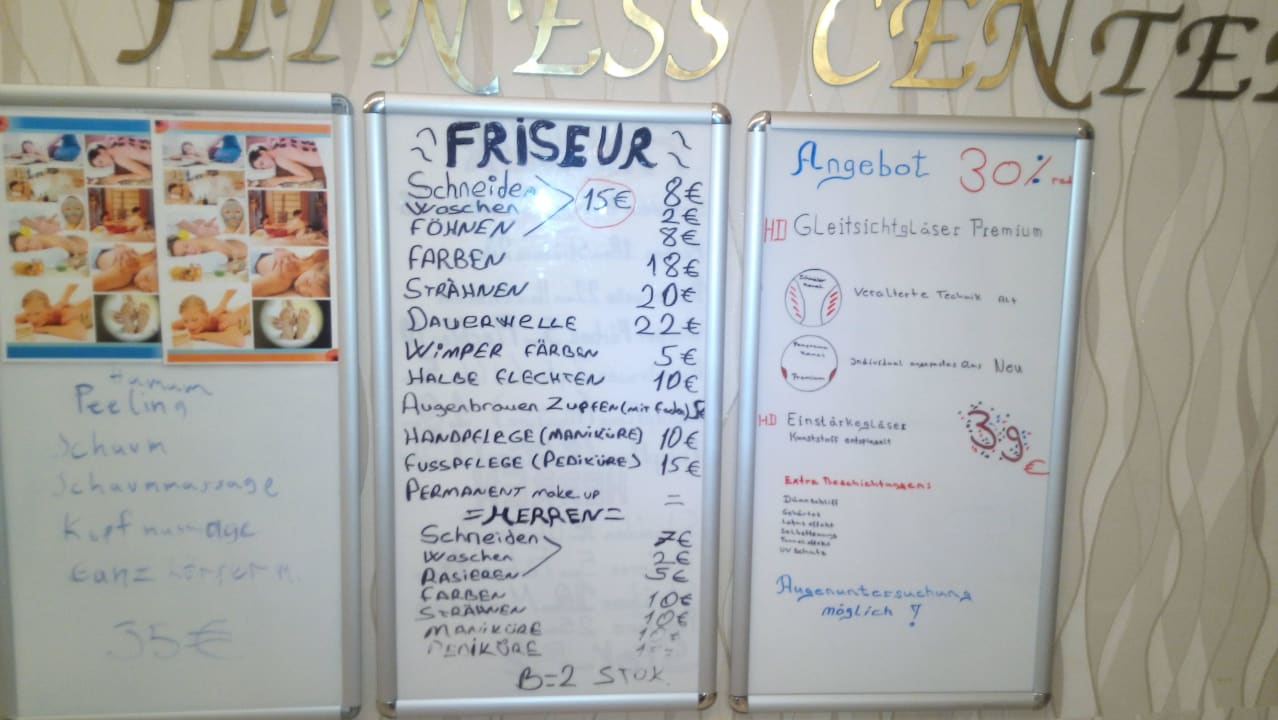 FITNESS CENTER
Hamam
Peeling
Schaum
Schaummassage
Ganz
35€
FRISEUR
Schneiden 8€
waschen 2€
FÖHNEN 8€
15€
FARBEN 18€
STRÄHNEN 20€
DAUERWELLE 22€
WIMPER FÄRBEN 5€
HALBE FLECHTEN 10€
Augenbrauen ZUPFEN (mit Faden) 5€
HANDPFLEGE (MANIKÜRE) 10€
FUSSPFLEGE (PEDIKÜRE) 15€
PERMANENT make up =
=HERREN=
Schneiden 7€
Waschen 2€
RASIEREN 5€
FARBEN 10€
STRÄHNEN 10€
MANIKÜRE
PENIKÜRE
B=2 STOK.
Angebot 30%
HD Gleitsichtgläser Premium
Veralterte Technik Alt
Premium
Individual Neu
HD Einstärkegläser
Kunststoff entspiegelt
39 €
Extra Beschichtungen:
Dünnschliff
Gehärtet
Lotus effekt
UV Schutz
Augenuntersuchung
möglich !